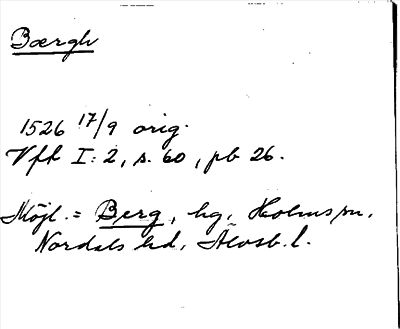 Bærgh
1526 17/9 orig.
Vfk I:2, s. 60, pb 26.
Möjl. = Berg, hg, Holms sn,
Nordals hd, Älvsb. l.